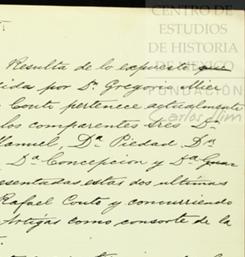 CENTRO DE
ESTUDIOS
DE HISTORIA
DE MÉXICO
FUNDACIÓN
Carlos Slim
Resulta de lo expuesto que
ida por Dn. Gregorio Mier
Couto pertenece actualmente
los comparentes Sres Dn.
Manuel, Da. Piedad Da.
Da. Concepcion y Da. Gua
esentadas estas dos ultimas
Rafael Couto y concurriendo
Artigas como consorte de la